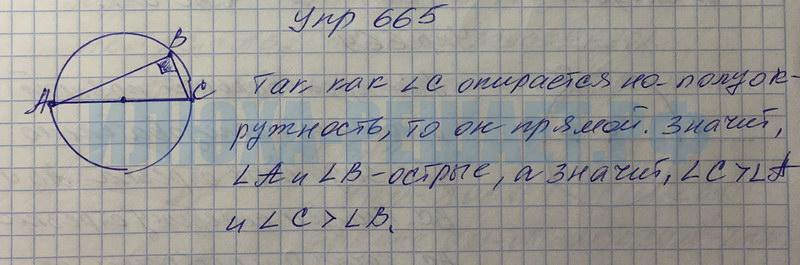 Упр 665
B
A
C
Так как ∠C опирается на полуок-
ружность, то он прямой. Значит,
∠A и ∠B - острые, а значит, ∠C > ∠A
и ∠C > ∠B.